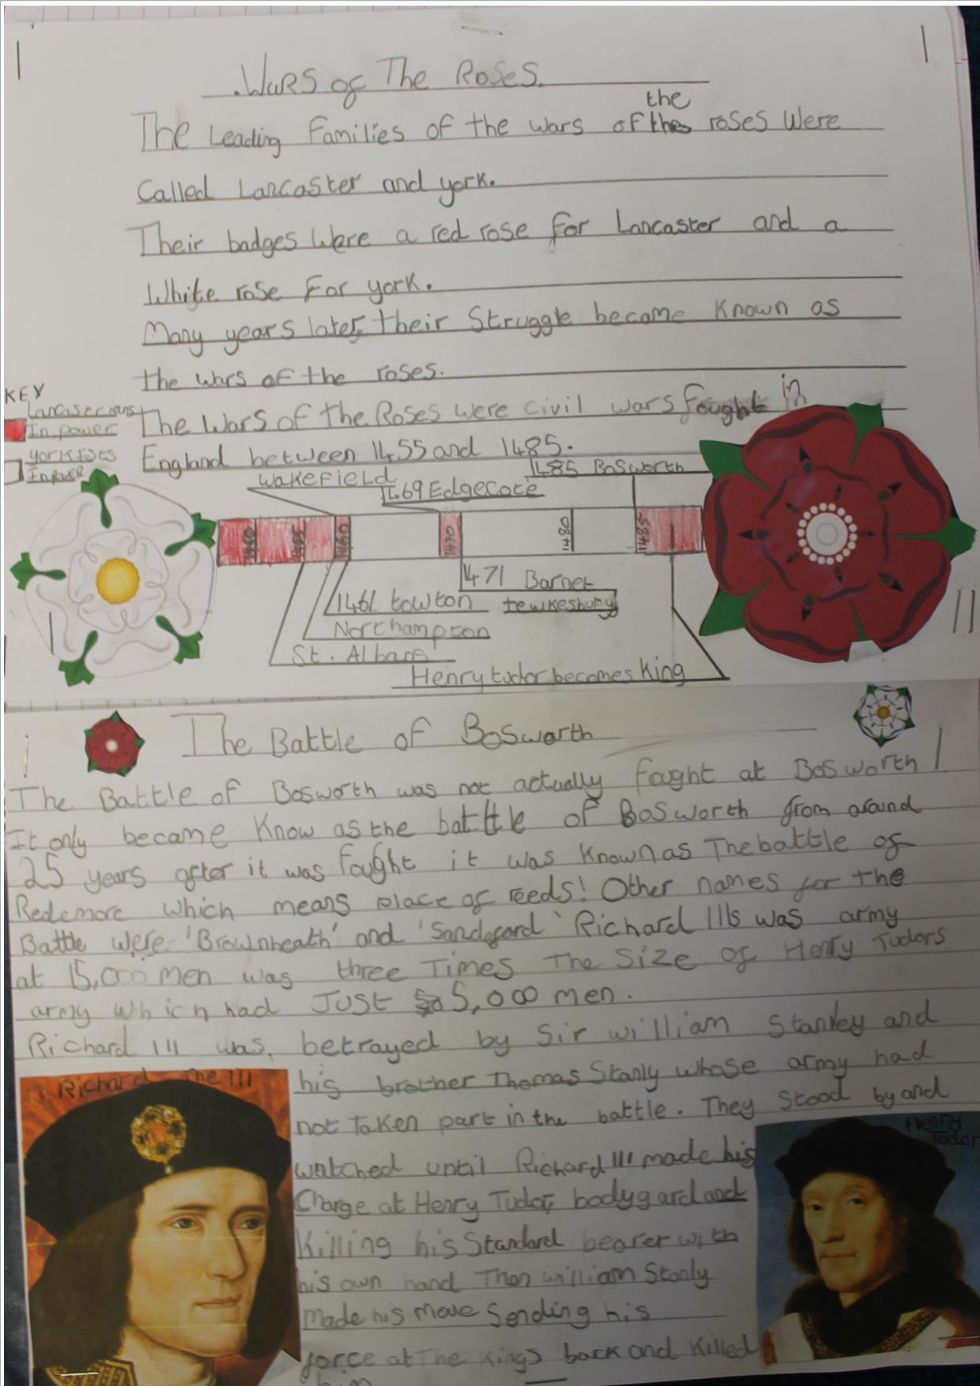 Wars of The Roses.
the
The Leading Families of the wars of the roses Were
Called Lancaster and york.
Their badges Were a red rose for Lancaster and a
White rose For york.
Many years later, their Struggle became Known as
the wars of the roses.
KEY
Lancastrians
In power
Yorkists
In power
The Wars of the Roses were civil wars fought in
England between 1455 and 1485.
Wakefield
1469 Edgecote
1485 Bosworth
1460
1470
1480
1485
1471 Barnet
tewkesbury
1461 towton
Northampton
St. Albans
Henry tudor becomes King
The Battle of Bosworth
The Battle of Bosworth was not actually faught at Bosworth
It only became Know as the battle of Bosworth from around
25 years after it was fought it was Known as The battle of
Redemore which means place of reeds! Other names for the
Battle were 'Brownheath' and 'Sandeford' Richard IIIs was army
at 15,000 men was three Times The size of Henry Tudors
army which had Just 5,000 men.
Richard III was, betrayed by Sir william Stanley and
Richard The III
his brother Thomas Stanly whose army had
not Taken part in the battle. They Stood by and
Henry
Tudor
watched until Richard III made his
Charge at Henry Tudor, bodygard and
Killing his Standard bearer with
his own hand Then william Stanly
Made his Move Sending his
force at The Kings back and Killed
him